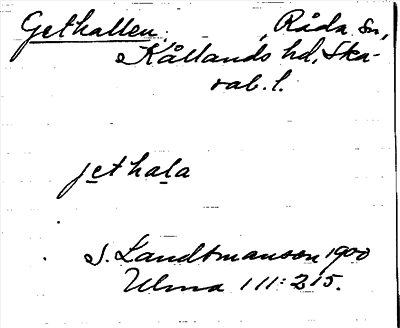 Gethallen, Råda sn,
Kållands hd, Ska-
rab. l.
jethala
S. Landtmanson 1900
Ulma 111:215.